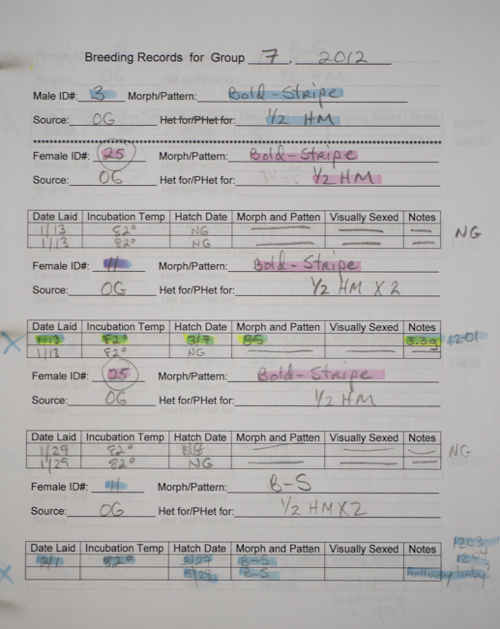 Breeding Records for Group 7, 2012
Male ID#: 3 Morph/Pattern: Bold-Stripe
Source: OG Het for/PHet for: 1/2 HM
Female ID#: 25 Morph/Pattern: Bold-Stripe
Source: OG Het for/PHet for: 1/2 HM
Date Laid Incubation Temp Hatch Date Morph and Patten Visually Sexed Notes
1/13 82° NG — — —
1/13 82° NG — — — NG
Female ID#: 11 Morph/Pattern: Bold-Stripe
Source: OG Het for/PHet for: 1/2 HM X2
Date Laid Incubation Temp Hatch Date Morph and Patten Visually Sexed Notes
X 1/13 82° 3/7 B-S 3.3g 12-01
1/13 82° NG — — —
Female ID#: 25 Morph/Pattern: Bold-Stripe
Source: OG Het for/PHet for: 1/2 HM
Date Laid Incubation Temp Hatch Date Morph and Patten Visually Sexed Notes
1/29 82° NG — — — NG
1/29 82° NG — — —
Female ID#: 11 Morph/Pattern: B-S
Source: OG Het for/PHet for: 1/2 HM X2
1203
Date Laid Incubation Temp Hatch Date Morph and Patten Visually Sexed Notes
X 2/1 82° 3/27 B-S
3/28 B-S